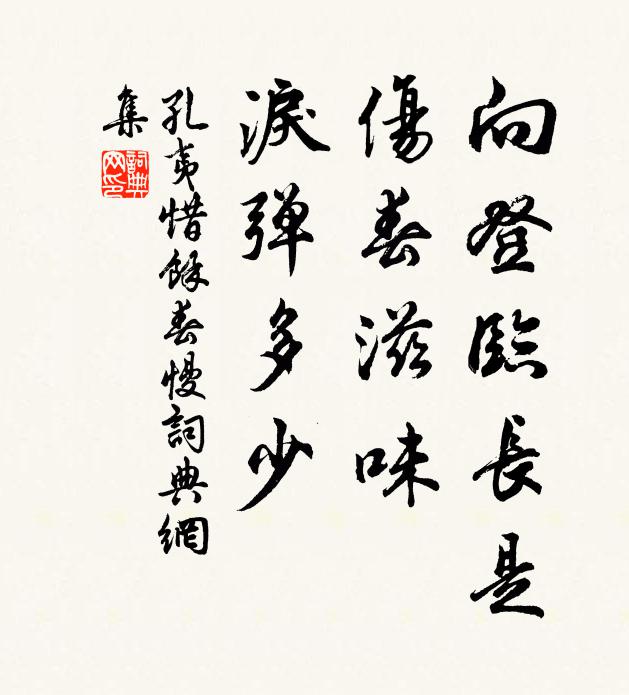 向登臨長是
傷春滋味
淚彈多少
孔夷惜餘春慢詞典網
集
詞典网印